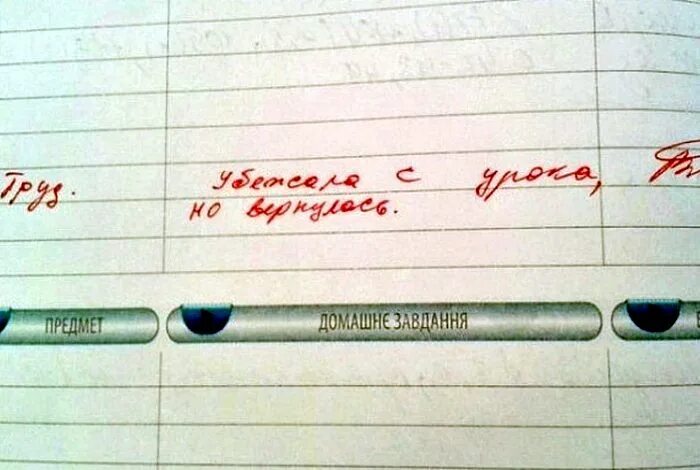 Труд. Убежала с урока,
но вернулась.
ПРЕДМЕТ ДОМАШНЄ ЗАВДАННЯ